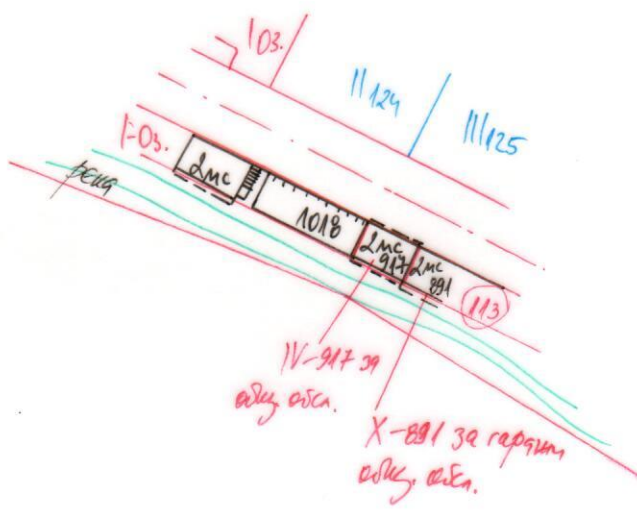 I оз.
II 124
III 125
I-оз.
река
2мс
1018
2мс
917
2мс
891
113
IV-917 за
общ. обсл.
X-891 за гаражи
общ. обсл.